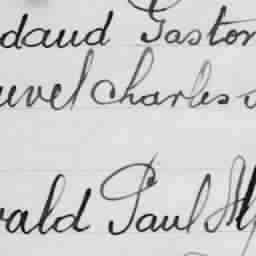 daud Gaston
uvel Charles
vald Paul Al